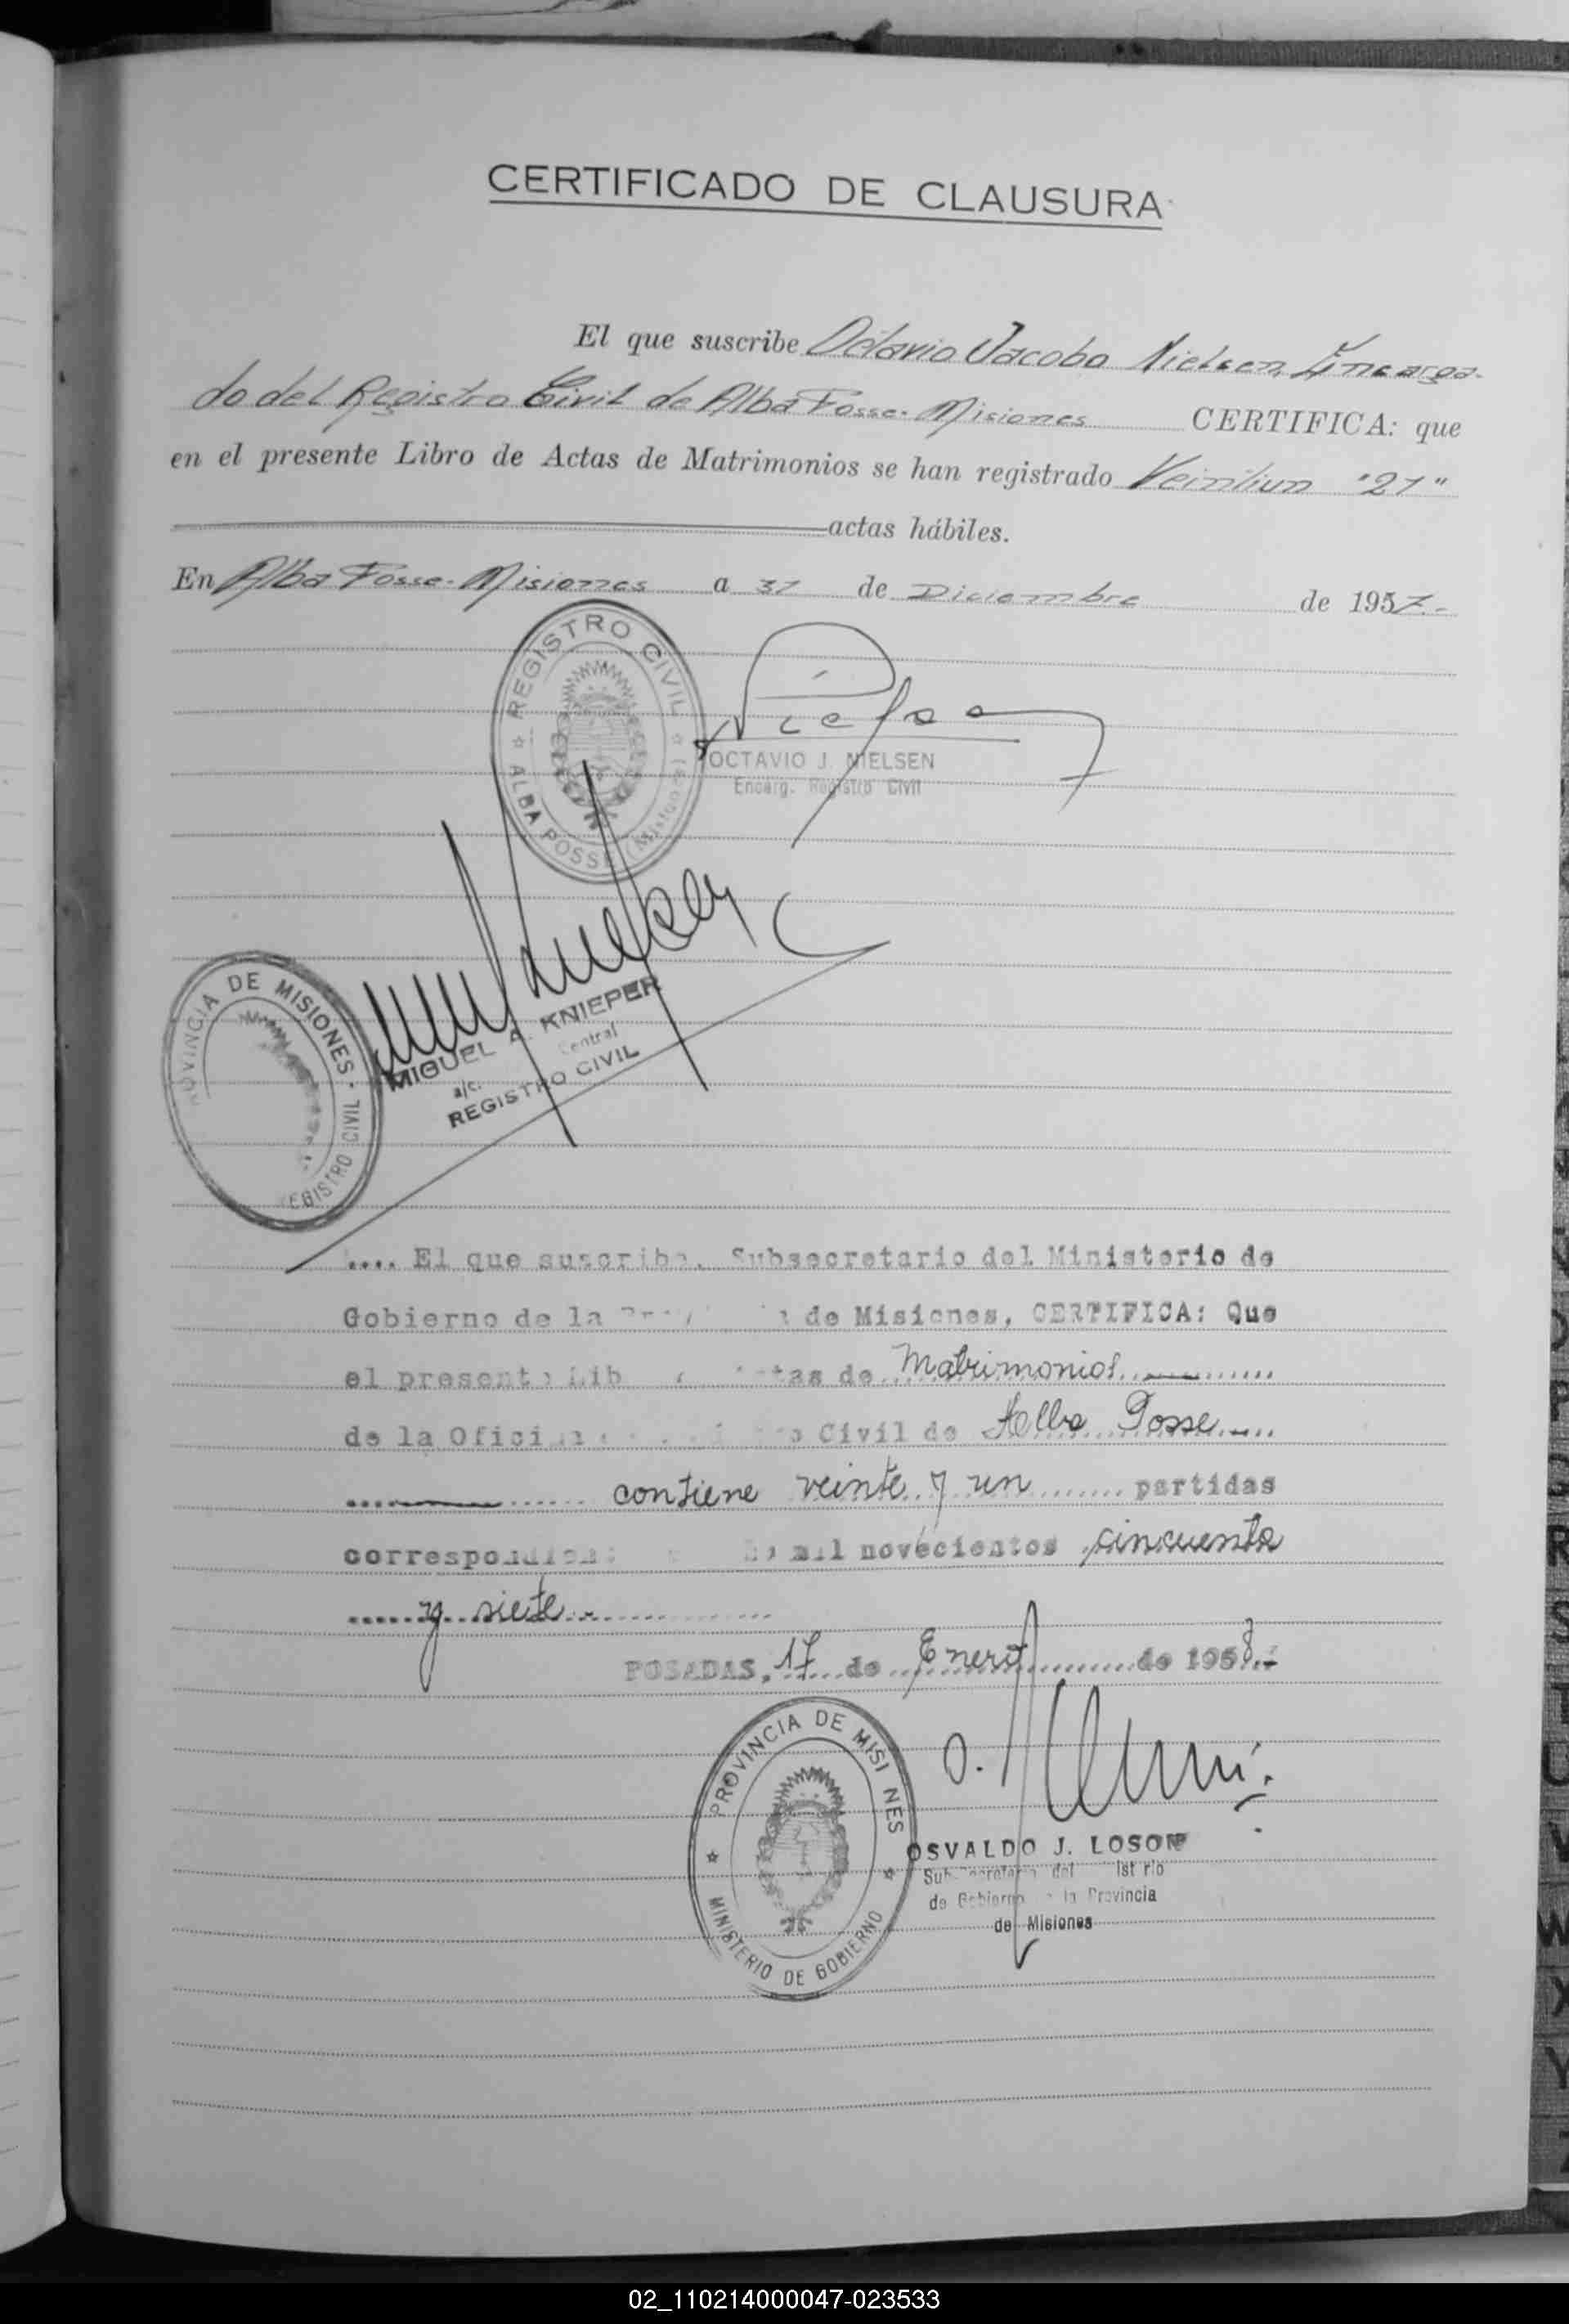 CERTIFICADO DE CLAUSURA
El que suscribe Octavio Jacobo Nielsen, Encarga-
do del Registro Civil de Alba Posse - Misiones CERTIFICA: que
en el presente Libro de Actas de Matrimonios se han registrado Veintiun "21"
actas hábiles.
En Alba Posse - Misiones a 31 de Diciembre de 1957.-
REGISTRO CIVIL
ALBA POSSE (Misiones)
Nielsen
OCTAVIO J. NIELSEN
Encarg. Registro Civil
PROVINCIA DE MISIONES - REGISTRO CIVIL
MIGUEL A. KNIEPER
a/c. Central
REGISTRO CIVIL
.... El que suscribe, Subsecretario del Ministerio de
Gobierno de la de Misiones, CERTIFICA: Que
el presente Lib tas de Matrimonios
de la Ofici Civil de Alba Posse
contiene veinte y un partidas
mil novecientos cincuenta
y siete
POSADAS, 17 de Enero de 1958.-
PROVINCIA DE MISI NES
MINISTERIO DE GOBIERNO
OSVALDO J. LOSON
de Gobierno la Provincia
de Misiones
02_110214000047-023533